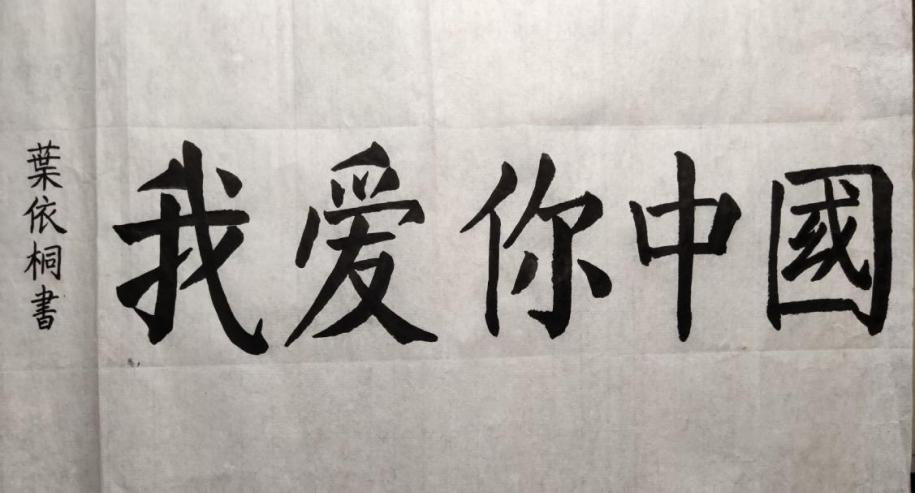 我爱你中國
葉依桐書